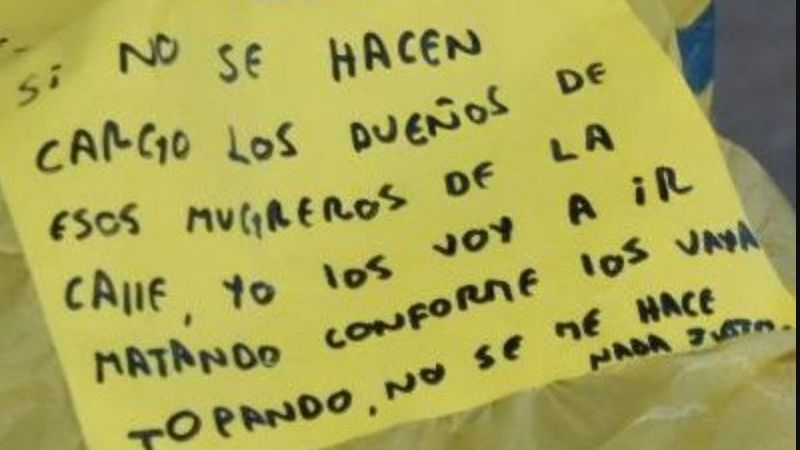 Si NO SE HACEN
CARGO LOS DUEÑOS DE
ESOS MUGREROS DE LA
CAllE, YO lOS VOY A iR
MATANDO CONFORME lOS VAYA
TOPANDO, NO SE ME HACE
NADA JUSTO.